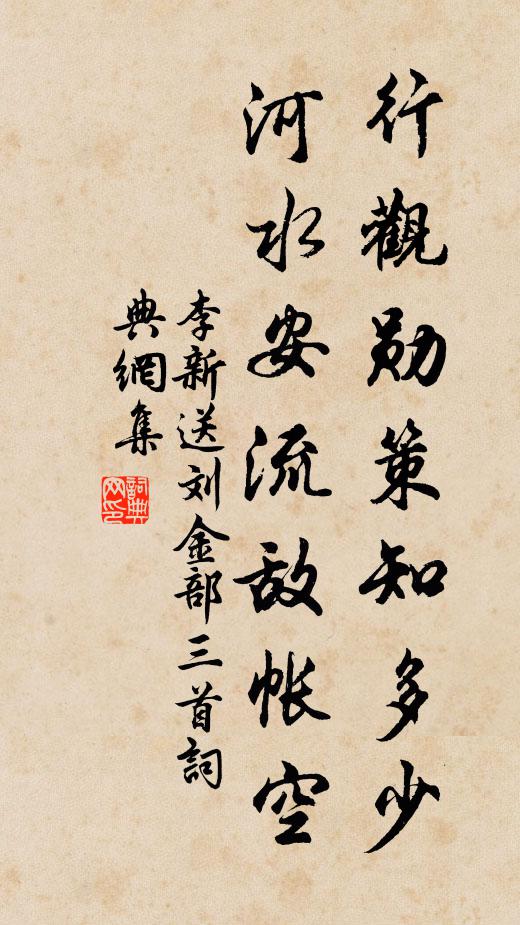 行觀勛策知多少
河水安流敌帐空
李新送刘金部三首詞
典網集
詞典网印